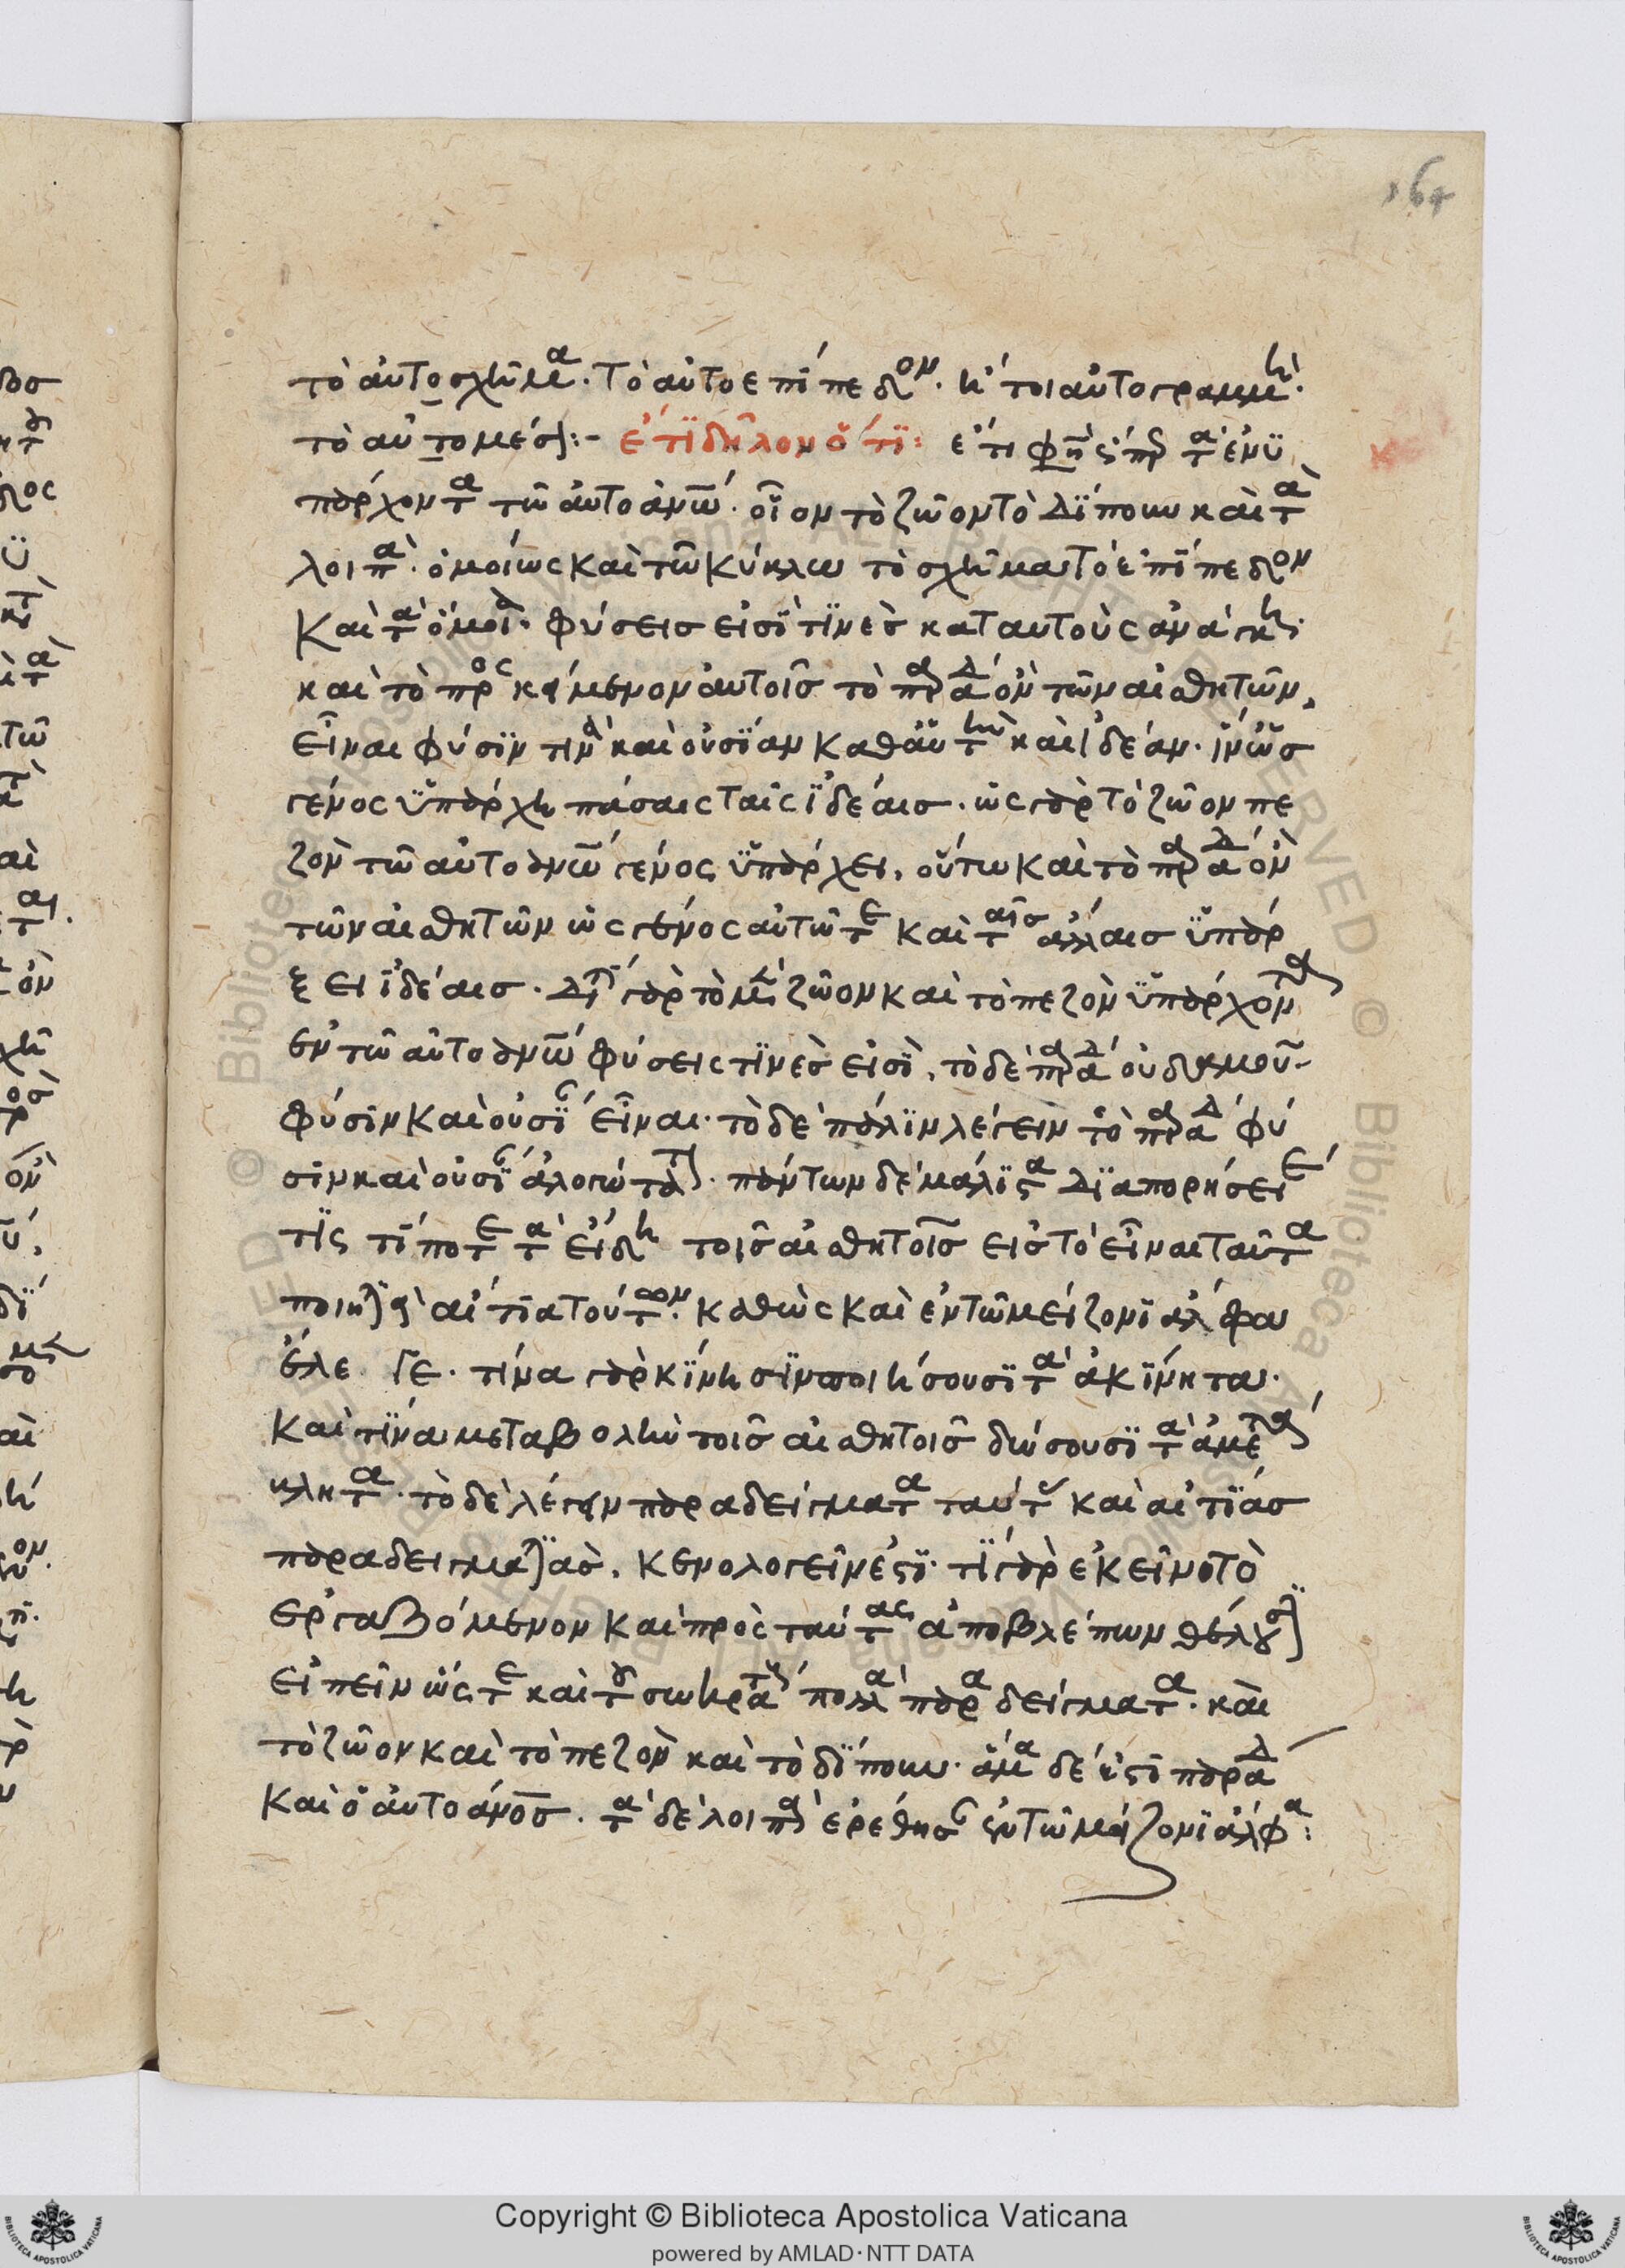 164
τὸ αὐτοσχῆμα. Τὸ αὐτοεπίπεδον. ἤτοι αὐτογραμμὴ.
τὸ αὐτομέσ:- ἔτι δῆλον ὅτι: ἔτι φη τὰ ἐνϋ
πάρχοντα τῶ αὐτοανω. οἷον τὸ ζῶον τὸ δίπουν καὶ τὰ
λοιπὰ. ὁμοίως καὶ τῶ κύκλω τὸ σχῆμα τὸ ἐπίπεδον
καὶ τὰ ὅμοια. φύσεις εἰσὶ τινὲς κατ αυτοὺς ἀνάγκη.
καὶ τὸ προσκείμενον αὐτοῖς τὸ παρὰ ὂν τῶν αἰσθητῶν,
εἶναι φύσιν τινὰ καὶ οὐσίαν καθ αὑτὴν καὶ ἰδέαν. ἵν ὡς
γένος ὑπάρχη πάσαις ταῖς ἰδέαις. ὡς γὰρ τὸ ζῶον πε
ζὸν τῶ αὐτοανω γένος ὑπάρχει. οὕτω καὶ τὸ παρὰ ὂν
τῶν αἰσθητῶν ὡς γένος αὐτῶ τε καὶ ταῖς ἄλλαις ὑπάρ
ξει ἰδέαις. διατί γὰρ τὸ μὲν ζῶον καὶ τὸ πεζὸν ὑπάρχοντα
ἐν τῶ αὐτοανω φύσεις τινὲς εἰσὶ, τὸ δὲ παρὰ οὐδαμοῦ.
φύσιν καὶ οὐσί εἶναι. τὸ δὲ πάλιν λέγειν τὸ παρὰ φύ
σιν καὶ οὐσί ἀλογώτατ. πάντων δὲ μάλιστα διαπορήσειε
τις τί ποτε τὰ εἴδη τοῖς αἰσθητοῖς εἰς τὸ εἶναι ταῦτα
ποιητικὰ αἴτια τούτων. καθὼς καὶ ἐν τῶ μείζονι ἄλφα
ἔλε γε. τίνα γὰρ κίνησιν ποιήσουσι τὰ ἀκίνητα.
καὶ τίνα μεταβολὴν τοῖς αἰσθητοῖς δώσουσι τὰ ἀμετά
κλητα. τὸ δὲ λέγειν παραδείγματα ταύτ καὶ αἰτίας
παραδειγματικὰς. κενολογεῖν ἐστί. τί γὰρ ἐκεῖνο τὸ
ἐργαζόμενον καὶ πρὸς ταύτας ἀποβλέπων θέλουσι
εἰπεῖν ὥστε καὶ τοῦ σωκράτους πολλὰ παραδείγματα. καὶ
τὸ ζῶον καὶ τὸ πεζὸν καὶ τὸ δίπουν. ἅμα δέ ἐστι παράδ
καὶ ὁ αὐτοανος. τὰ δὲ λοιπὰ ἐρέθησ ἐν τῶ μείζονι ἄλφα: